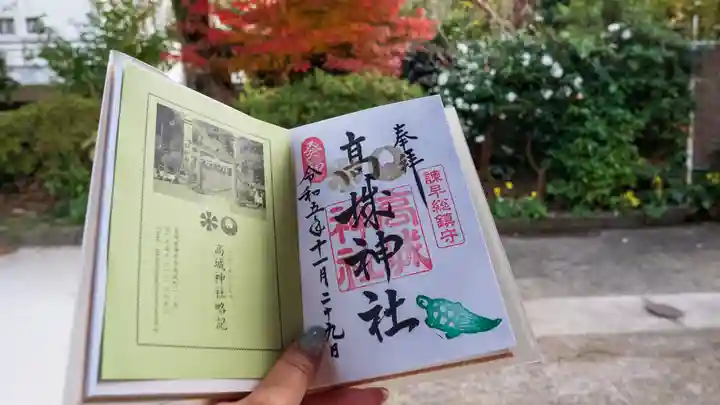 奉拝
諫早総鎮守
高城神社
高城神社
癸卯
令和五年十一月二十九日
高城神社略記